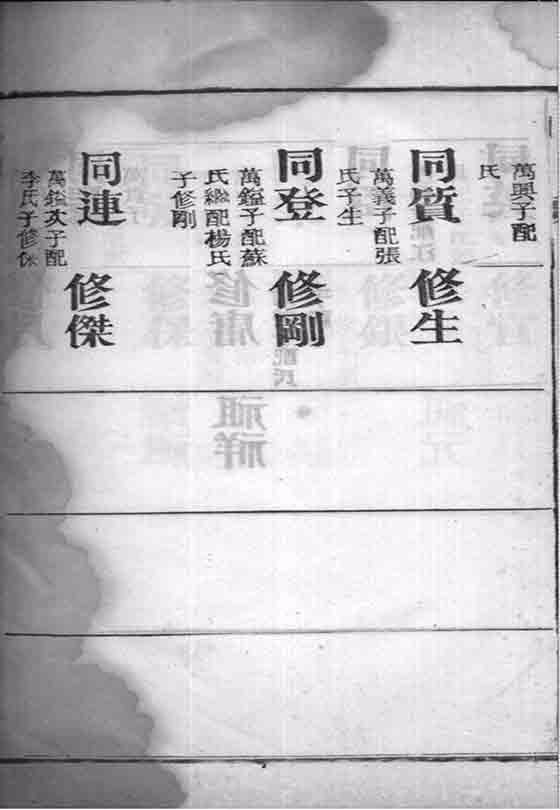 萬興子配
氏
同質
萬義子配張
氏子生
修生
同登
萬鎰子配蘇
氏繼配楊氏
子修剛
修剛
同連
萬鎰次子配
李氏子修
修傑